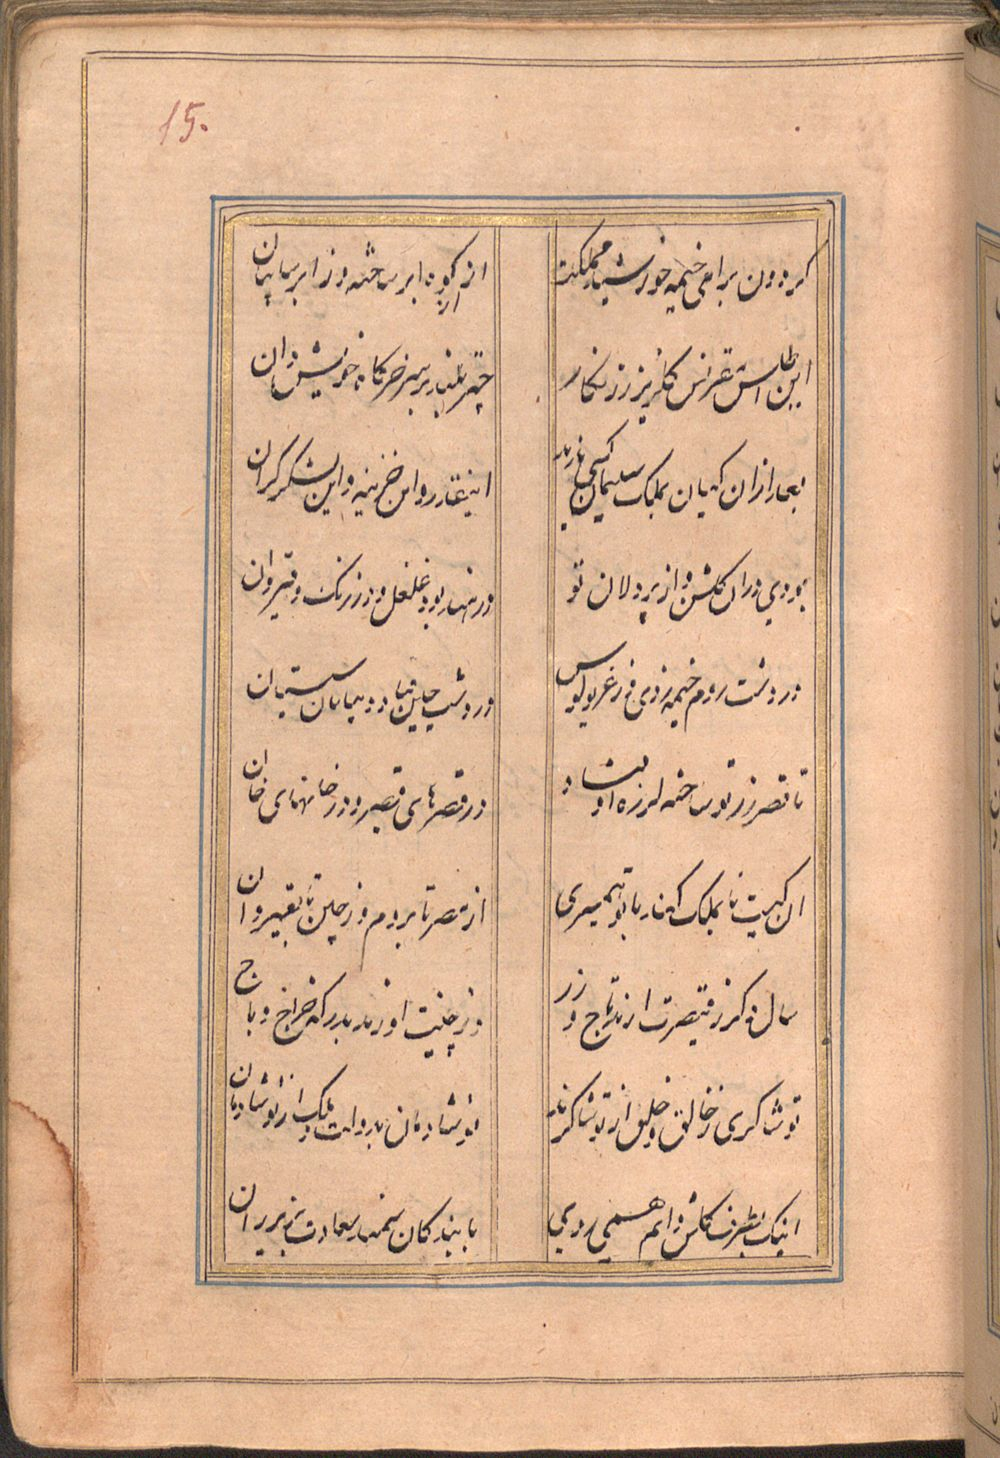 15.
کردون برای خیمه خورشید مملکت از کوه ابر ساخته وز ابر سایبان
این اطلس نکار چتر بلند بر سر خرکاه خویش دان
بعد از ان کیان بملک سلیمان کسی ندید اینقدر و این خزینه و این لشکر کران
بودی دران کلشن و از پردلان تو در هند بود غلغل و در زنک و قیروان
در دشت روم خیمه زدی و غریو کوس در دشت چین فتاد و بیابان سیستان
تا قصر زر تو ساخته لرزه اوفتاد در قصرهای قیصر و در خانهای خان
ان کیست تا بملک کند با تو همسری از مصر تا بروم وز چین تا بقیروان
سال نو کرز قیصرت ارند تاج و زر وز چینت اورند بدرکه خراج و باج
تو شاکری ز خالق و خلق از تو شاکرند تو شادمان بدولت و ملک از تو شادمان
اینک بطرف کلشن و همی روی با بندکان سمند سعادت بزیر ران